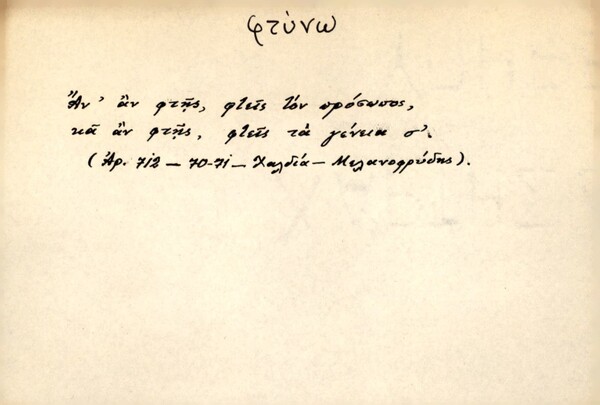 φτύνω
Ἄν' ἂν φτῇς, φτεῖς τὸν πρόσωπος,
κὰ ἂν φτῇς, φτεῖς τὰ γένεια σ'.
(Ἀρ. 712 – 70-71 – Χαλδία – Μελανοφρύδης).